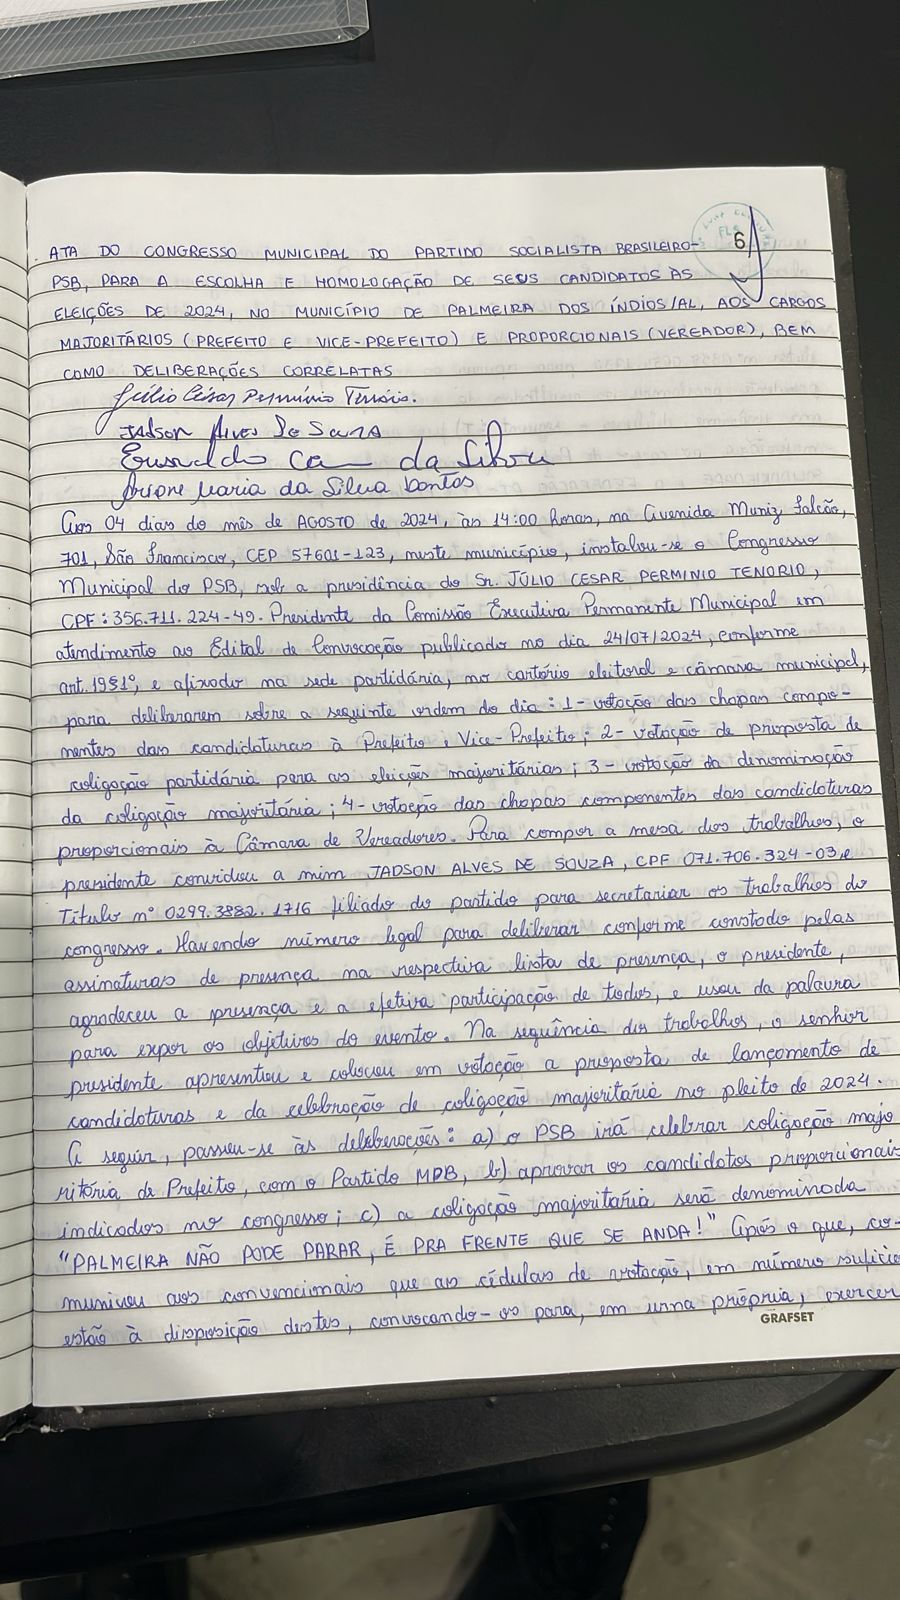 FLS
6
ATA DO CONGRESSO MUNICIPAL DO PARTIDO SOCIALISTA BRASILEIRO-
PSB, PARA A ESCOLHA E HOMOLOGAÇÃO DE SEUS CANDIDATOS ÀS
ELEIÇÕES DE 2024, NO MUNICÍPIO DE PALMEIRA DOS ÍNDIOS/AL, AOS CARGOS
MAJORITÁRIOS (PREFEITO E VICE-PREFEITO) E PROPORCIONAIS (VEREADOR), BEM
COMO DELIBERAÇÕES CORRELATAS
Júlio Cézar Permínio Tenório.
JADSON ALVES DE SOUZA
da Silva
Maria da Silva Santos
Aos 04 dias do mês de AGOSTO de 2024, às 14:00 horas, na Avenida Muniz Falcão,
701, São Francisco, CEP 57601-123, neste município, instalou-se o Congresso
Municipal do PSB, sob a presidência do Sr. JÚLIO CESAR PERMINIO TENORIO,
CPF: 356.711.224-49. Presidente da Comissão Executiva Permanente Municipal em
atendimento ao Edital de Convocação publicado no dia 24/07/2024, conforme
art.19§1º, e afixado na sede partidária, no cartório eleitoral e câmara municipal,
para deliberarem sobre a seguinte ordem do dia: 1- votação das chapas compo-
nentes das candidaturas à Prefeito e Vice-Prefeito; 2- votação de proposta de
coligação partidária para as eleições majoritárias; 3- votação da denominação
da coligação majoritária; 4- votação das chapas componentes das candidaturas
proporcionais à Câmara de Vereadores. Para compor a mesa dos trabalhos, o
presidente convidou a mim, JADSON ALVES DE SOUZA, CPF 071.706.324-03, e
Título nº 0299.3882.1716 filiado do partido para secretariar os trabalhos do
congresso. Havendo número legal para deliberar conforme constado pelas
assinaturas de presença na respectiva lista de presença, o presidente,
agradeceu a presença e a efetiva participação de todos, e usou da palavra
para expor os objetivos do evento. Na sequência dos trabalhos, o senhor
presidente apresentou e colocou em votação a proposta de lançamento de
candidaturas e da celebração de coligação majoritária no pleito de 2024.
A seguir, passou-se às deliberações: a) o PSB irá celebrar coligação majo
ritória de Prefeito, com o Partido MDB, b) aprovar os candidatos proporcionais
indicados no congresso; c) a coligação majoritária será denominada
"PALMEIRA NÃO PODE PARAR, É PRA FRENTE QUE SE ANDA!" Após o que, co-
municou aos convencionais que as cédulas de votação, em número sufici
estão à disposição destes, convocando-os para, em urna própria, exercer
GRAFSET